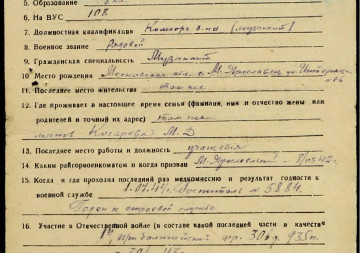 5. Образование
6. На ВУС 108
7. Должностная квалификация Комсорг б-на (музыкант)
8. Военное звание Рядовой
9. Гражданская специальность Музыкант
10 Место рождения Московская обл. г. М. Ярославец ул.
11. Последнее место жительства там же
12. Где проживает в настоящее время семья (фамилия, имя и отчество жены или
родителей и точный на адрес) там же
мать Косарева М. Д
13. Последнее место работы и должность учащейся
14. Каким райгорвоенкоматом и когда призван М. Ярославецк
15. Когда и где проходил раз последний медкомиссию и результат годности к
военной службе 1.07.44г. Госпиталь № 5884.
Годен к строевой службе
16. Участие в Отечественной войне (в составе какой последней части в качестве
1й Прибалтийский фр. 306д. 935п.